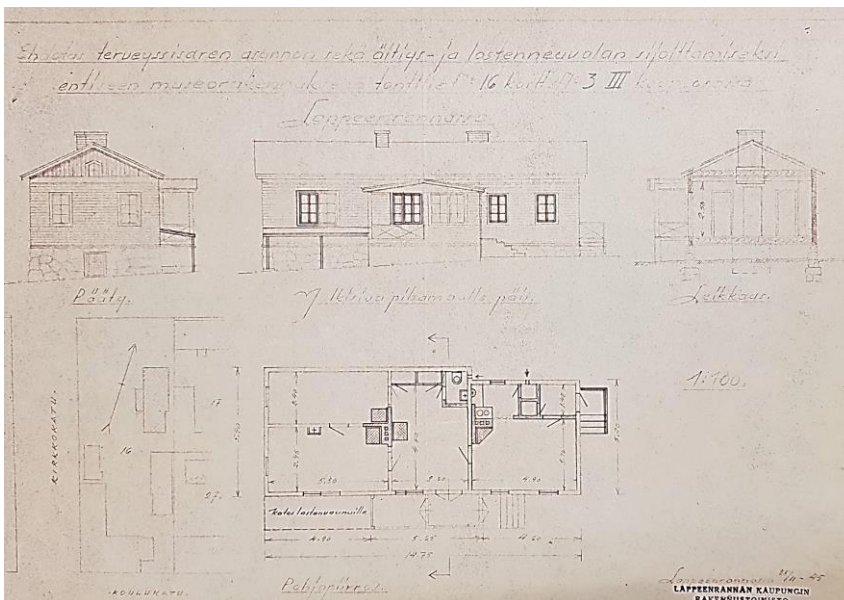 Ehdotus terveyssisaren asunnon sekä äitiys- ja lastenneuvolan sijoittamiseksi
entiseen museorakennukseen tontille N:o 16 kortt. N:o 3 III kaup. osassa
Lappeenrannassa
Pääty.
Julkisivu pihamaalle päin.
Leikkaus.
2.50
1:100.
KIRKKOKATU.
16
17
27.
KOULUKATU.
5.90
2.95
5.30
5.20
4.90
1.40
Katos lastenvaunuille
4.90
5.25
4.60
14.75
Pohjapiirros.
Lappeenrannassa
LAPPEENRANNAN KAUPUNGIN
RAKENNUSTOIMISTO